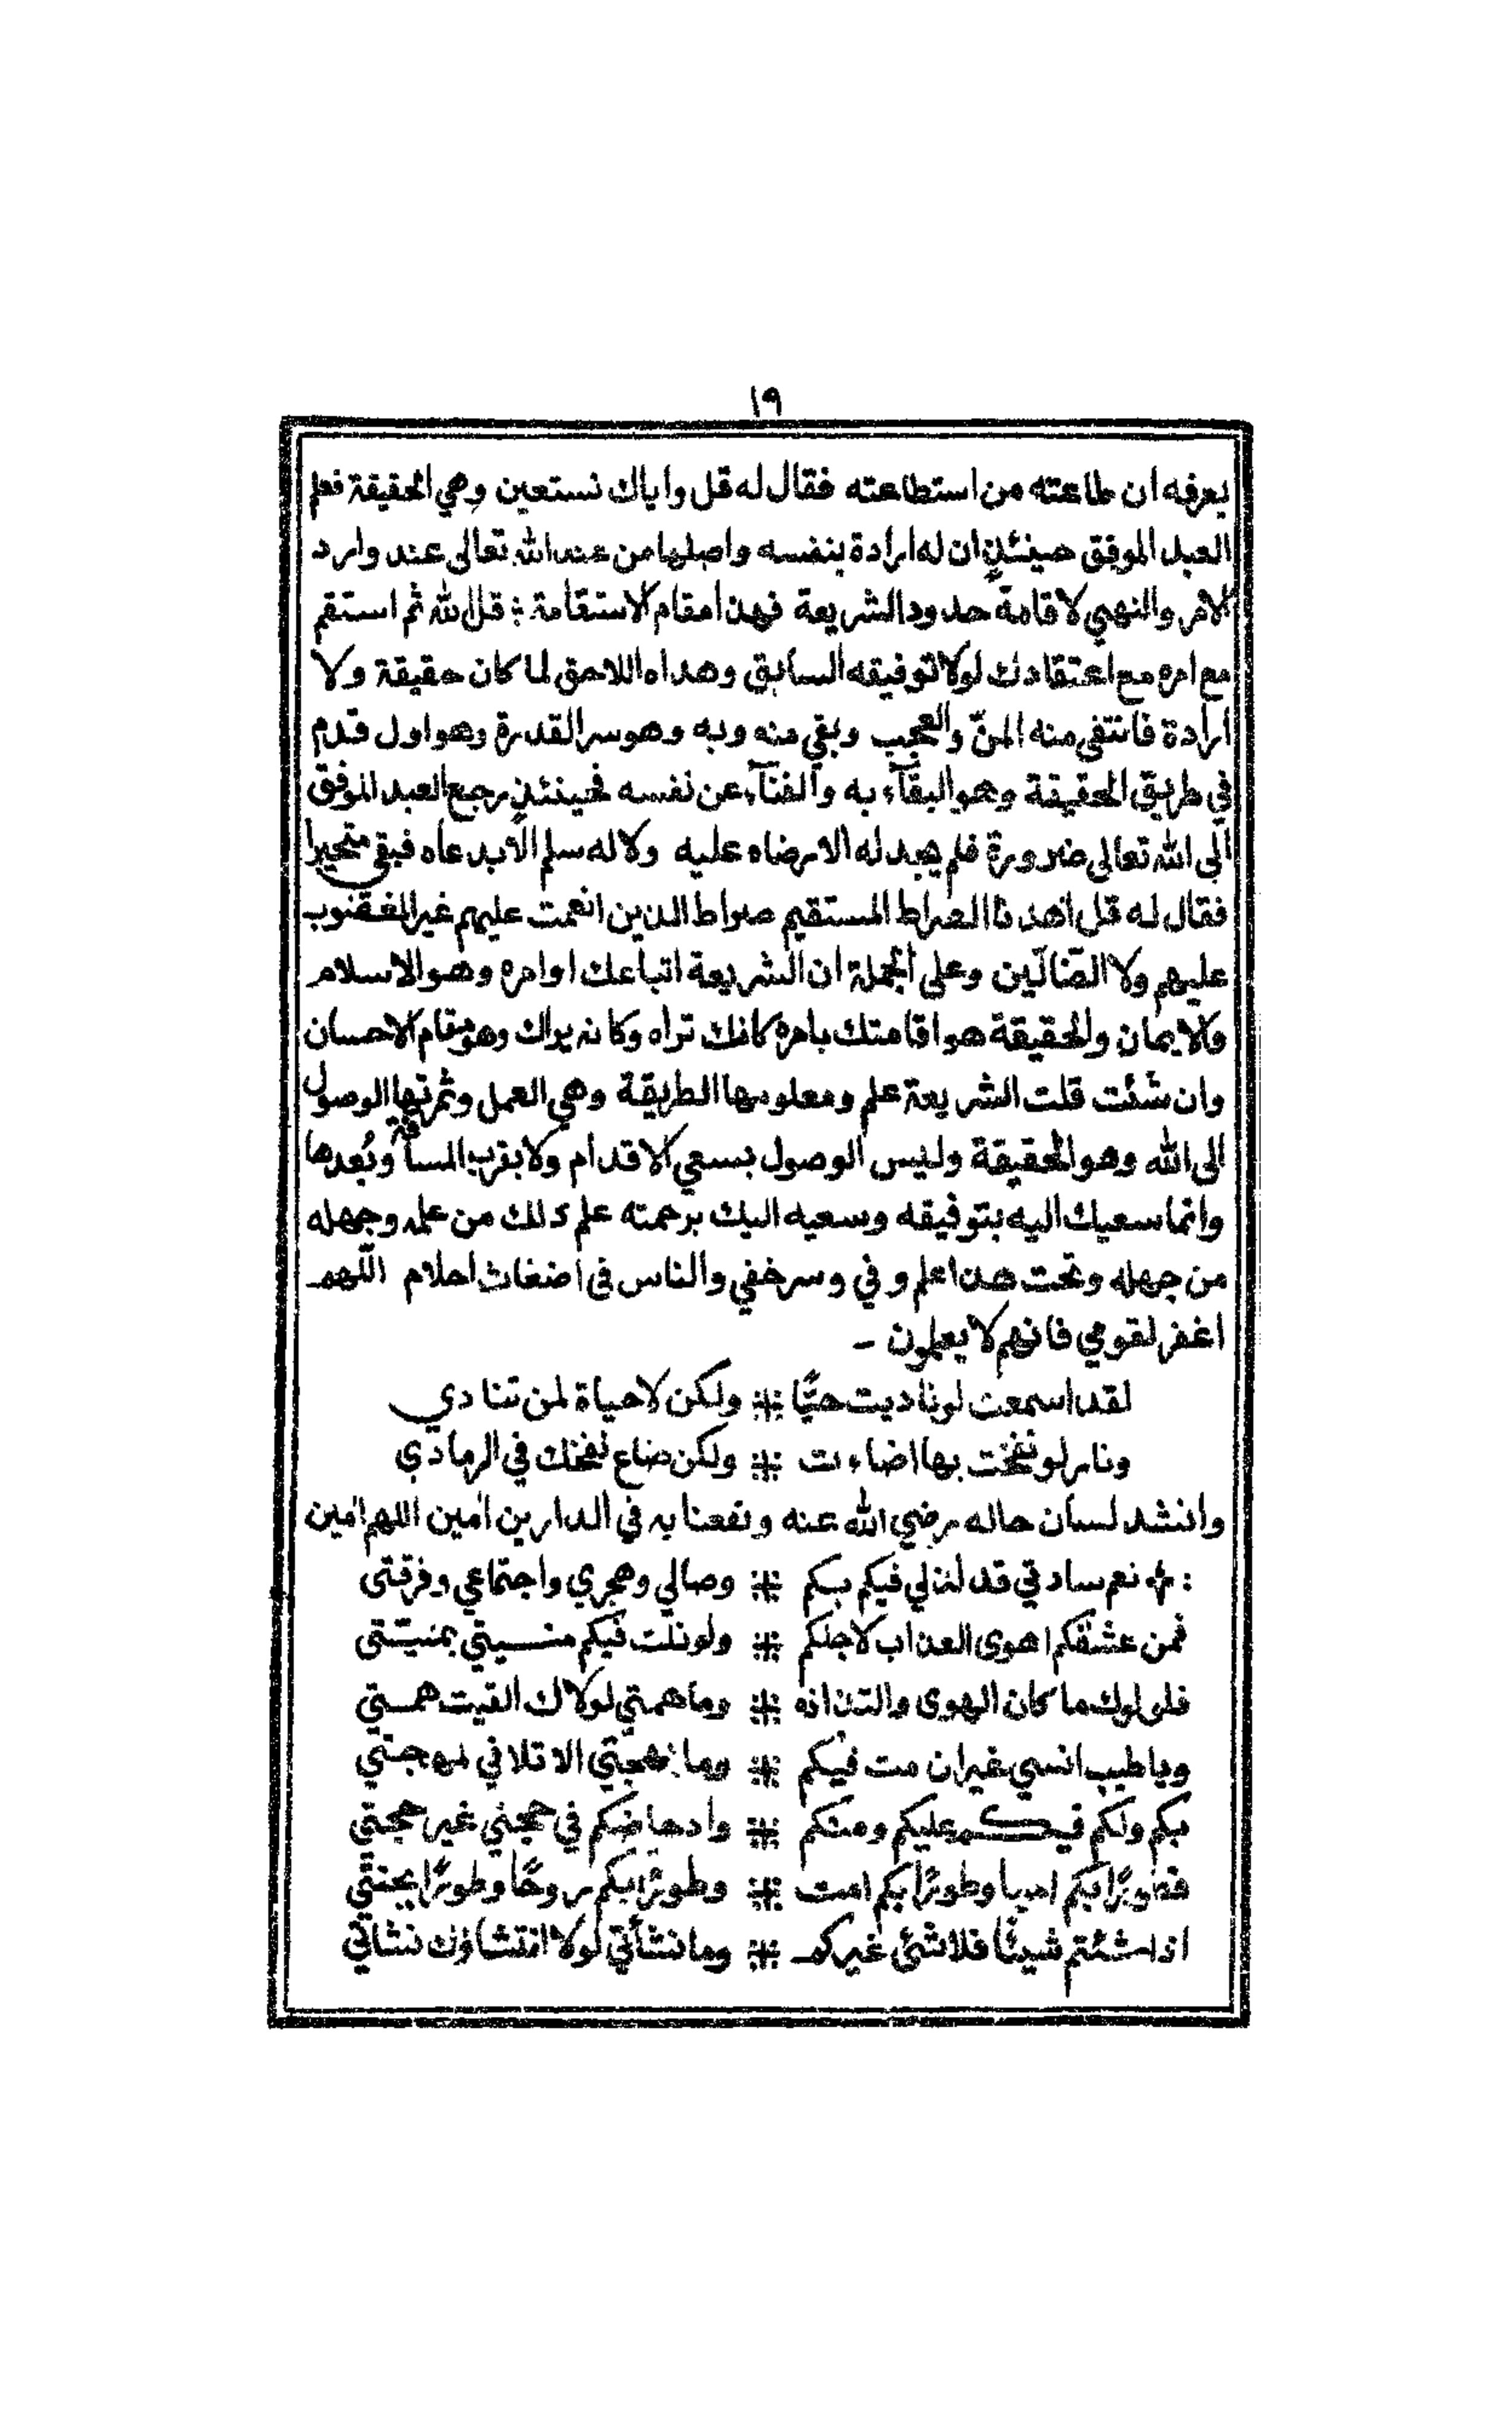 ١٩
يعرفه ان طاعته من استطاعته فقال له قل واياك نستعين وهي الحقيقة فعلم
العبد الموفق حينئذٍ ان له ارادة بنفسه واصلها من عند الله تعالى عند وارد
الامر والنهي لاقامة حدود الشريعة فهذا مقام الاستقامة : قل لله ثم استقم
مع امره مع اعتقادك لولا توفيقه السابق وهداه اللاحق لما كان حقيقة ولا
ارادة فانتفى منه المنّ والعجب وبقي منه وبه وهو سر القدرة وهو اول قدم
في طريق الحقيقة وهو البقآء به والفنآء عن نفسه فحينئذٍ رجع العبد الموفق
الى الله تعالى ضرورة فلم يجد له الا رضاه عليه ولا له سلم الا بدعاه فبقي متحيرا
فقال له قل اهدنا الصراط المستقيم صراط الذين انعمت عليهم غير المغضوب
عليهم ولا الضّالّين وعلى الجملة ان الشريعة اتباعك اوامره وهو الاسلام
والايمان والحقيقة هو اقامتك بامره كانك تراه وكانه يراك وهو مقام الاحسان
وان شئت قلت الشريعة علم ومعلومها الطريقة وهي العمل وثمرتها الوصول
الى الله وهو الحقيقة وليس الوصول بسعي الاقدام ولا بقرب المسافة وبُعدها
وانما سعيك اليه بتوفيقه وسعيه اليك برحمته علم ذلك من علمه وجهله
من جهله وتحت هذا علم وفي وسر خفي والناس في اضغاث احلام اللّهم
اغفر لقومي فانهم لا يعلمون -
لقد اسمعت لو ناديت حيًّا ⁜ ولكن لا حياة لمن تنادي
ونار لو نفخت بها اضاءت ⁜ ولكن ضاع نفخك في الرمادي
وانشد لسان حاله رضي الله عنه ونفعنا به في الدارين امين اللهم امين
: نعم سادتي قد لذ لي فيكم بكم ⁜ وصالي وهجري واجتماعي وفرقتي
فمن عشقكم اهوى العذاب لاجلكم ⁜ ولو نلت فيكم منسيتي بمنيتي
فلولوك ما كان الهوى والتذاذه ⁜ وما همتي لولاك القيت همتي
ويا طيب انسي غير ان مت فيكم ⁜ وما بهجتي الا تلافي لمهجتي
بكم ولكم فيكم عليكم ومنكم ⁜ وادحاضكم في حجتي غير حجتي
فطورًا بكم احيا وطورًا بكم امت ⁜ وطورًا بكم روحًا وطورًا بجنتي
اذا شئتم شيئًا فلا شئ غيركم ⁜ وما نشأتي لولا انتشاؤك نشأتي